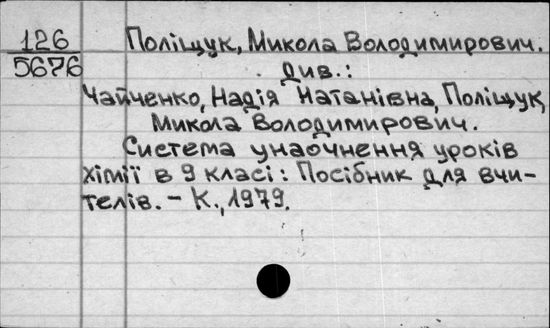 126
5676
Поліщук, Микола Володимирович.
див.:
Чайченко, Надія Натанівна, Поліщук,
Микола Володимирович.
Система унаочнення уроків
хімії в 9 класі: Посібник для вчи-
телів. – К., 1979.